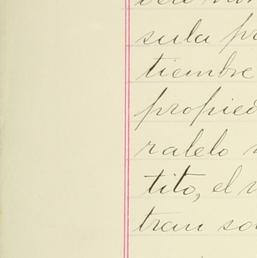 sula
tiembre
propied
ralelo
tito, el
tran so